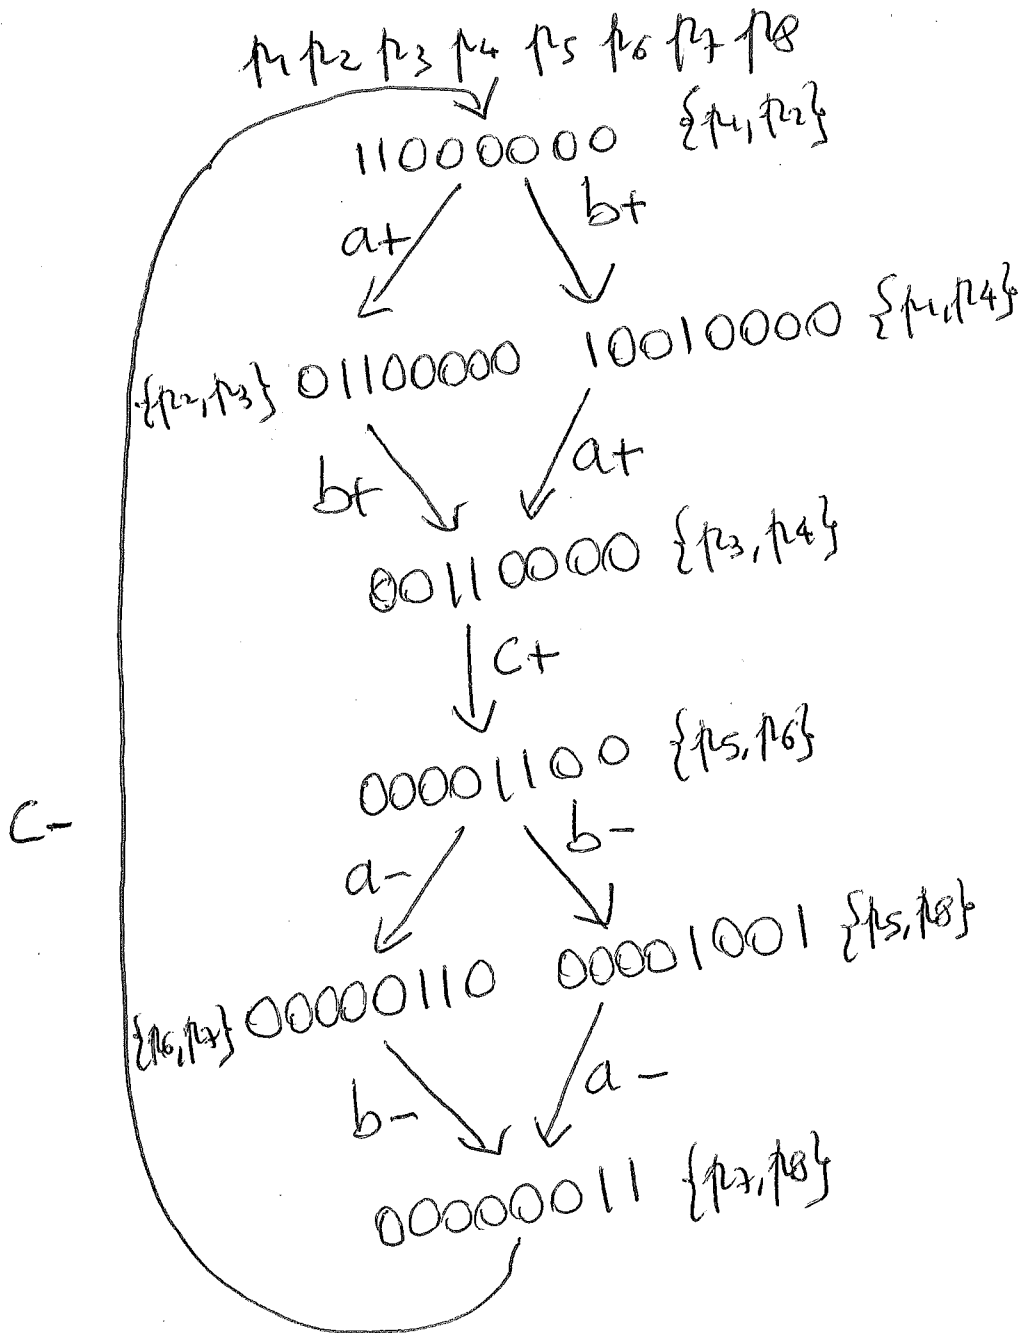 p1 p2 p3 p4 p5 p6 p7 p8
11000000 {p1, p2}
a+ b+
{p2, p3} 01100000 10010000 {p1, p4}
b+ a+
00110000 {p3, p4}
c+
00001100 {p5, p6}
c-
a- b-
{p6, p7} 00000110 00001001 {p5, p8}
b- a-
00000011 {p7, p8}